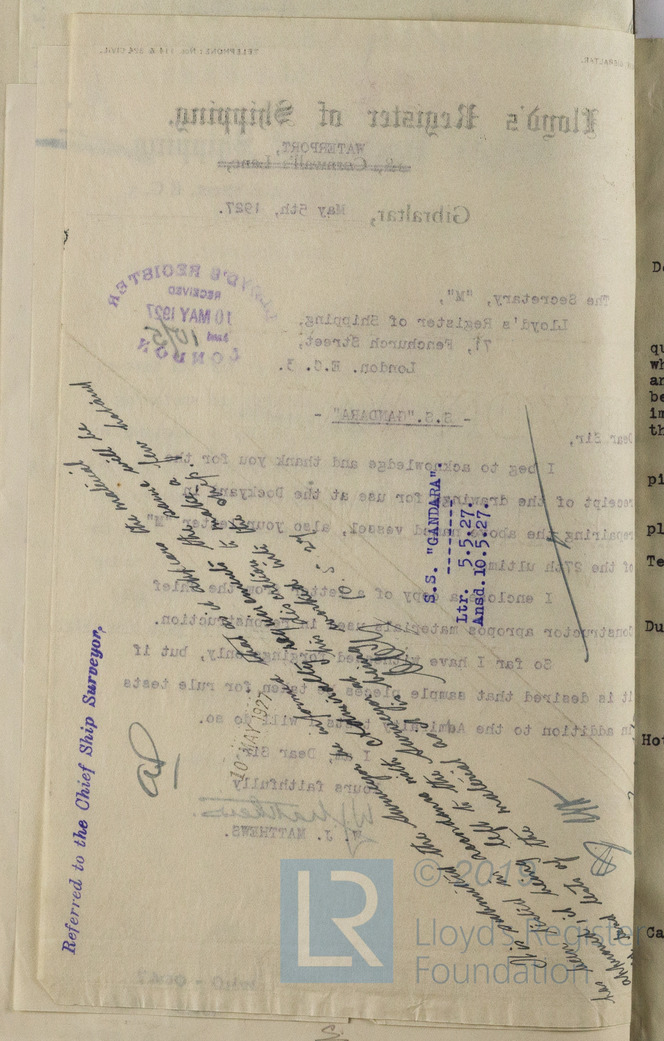 TELEPHONE: Nos.
GIBRALTAR.
Lloyd's Register of Shipping.
WATERPORT,
Cornwall's Lane,
Gibraltar, May 5th, 1927.
LLOYD'S REGISTER
RECEIVED
10 MAY 1927
10/5
LONDON
The Secretary, "M",
Lloyd's Register of Shipping,
71, Fenchurch Street,
London. E.C. 3.
- S.S. "GANDARA" -
Dear Sir,
I beg to acknowledge and thank you for the
receipt of the drawings for use at the Dockyard in
repairing the above named vessel, also your letter "M"
of the 27th ultimo.
I enclose a copy of a letter from the Chief
Constructor apropos materials used in reconstruction.
So far I have witnessed forgings only, but if
it is desired that sample pieces be taken for rule tests
in addition to the Admiralty tests I will do so.
I am, Dear Sir,
Yours faithfully
W J Matthews.
W. J. MATTHEWS.
S.S. "GANDARA".
Ltr. 5.5.27.
Ansd. 10.5.27.
Referred to the Chief Ship Surveyor,
10 MAY 1927
It is submitted the Surveyor be informed that it appears the material
tested in accordance with Admiralty requirements the same will be
it being left to the Surveyor at his discretion to make a few
and tests of the material
10.5.27
LR
© 2019
Lloyd's Register
Foundation
qu
wh
an
be
im
th
pi
pl
Te
Du
Hot
Ca